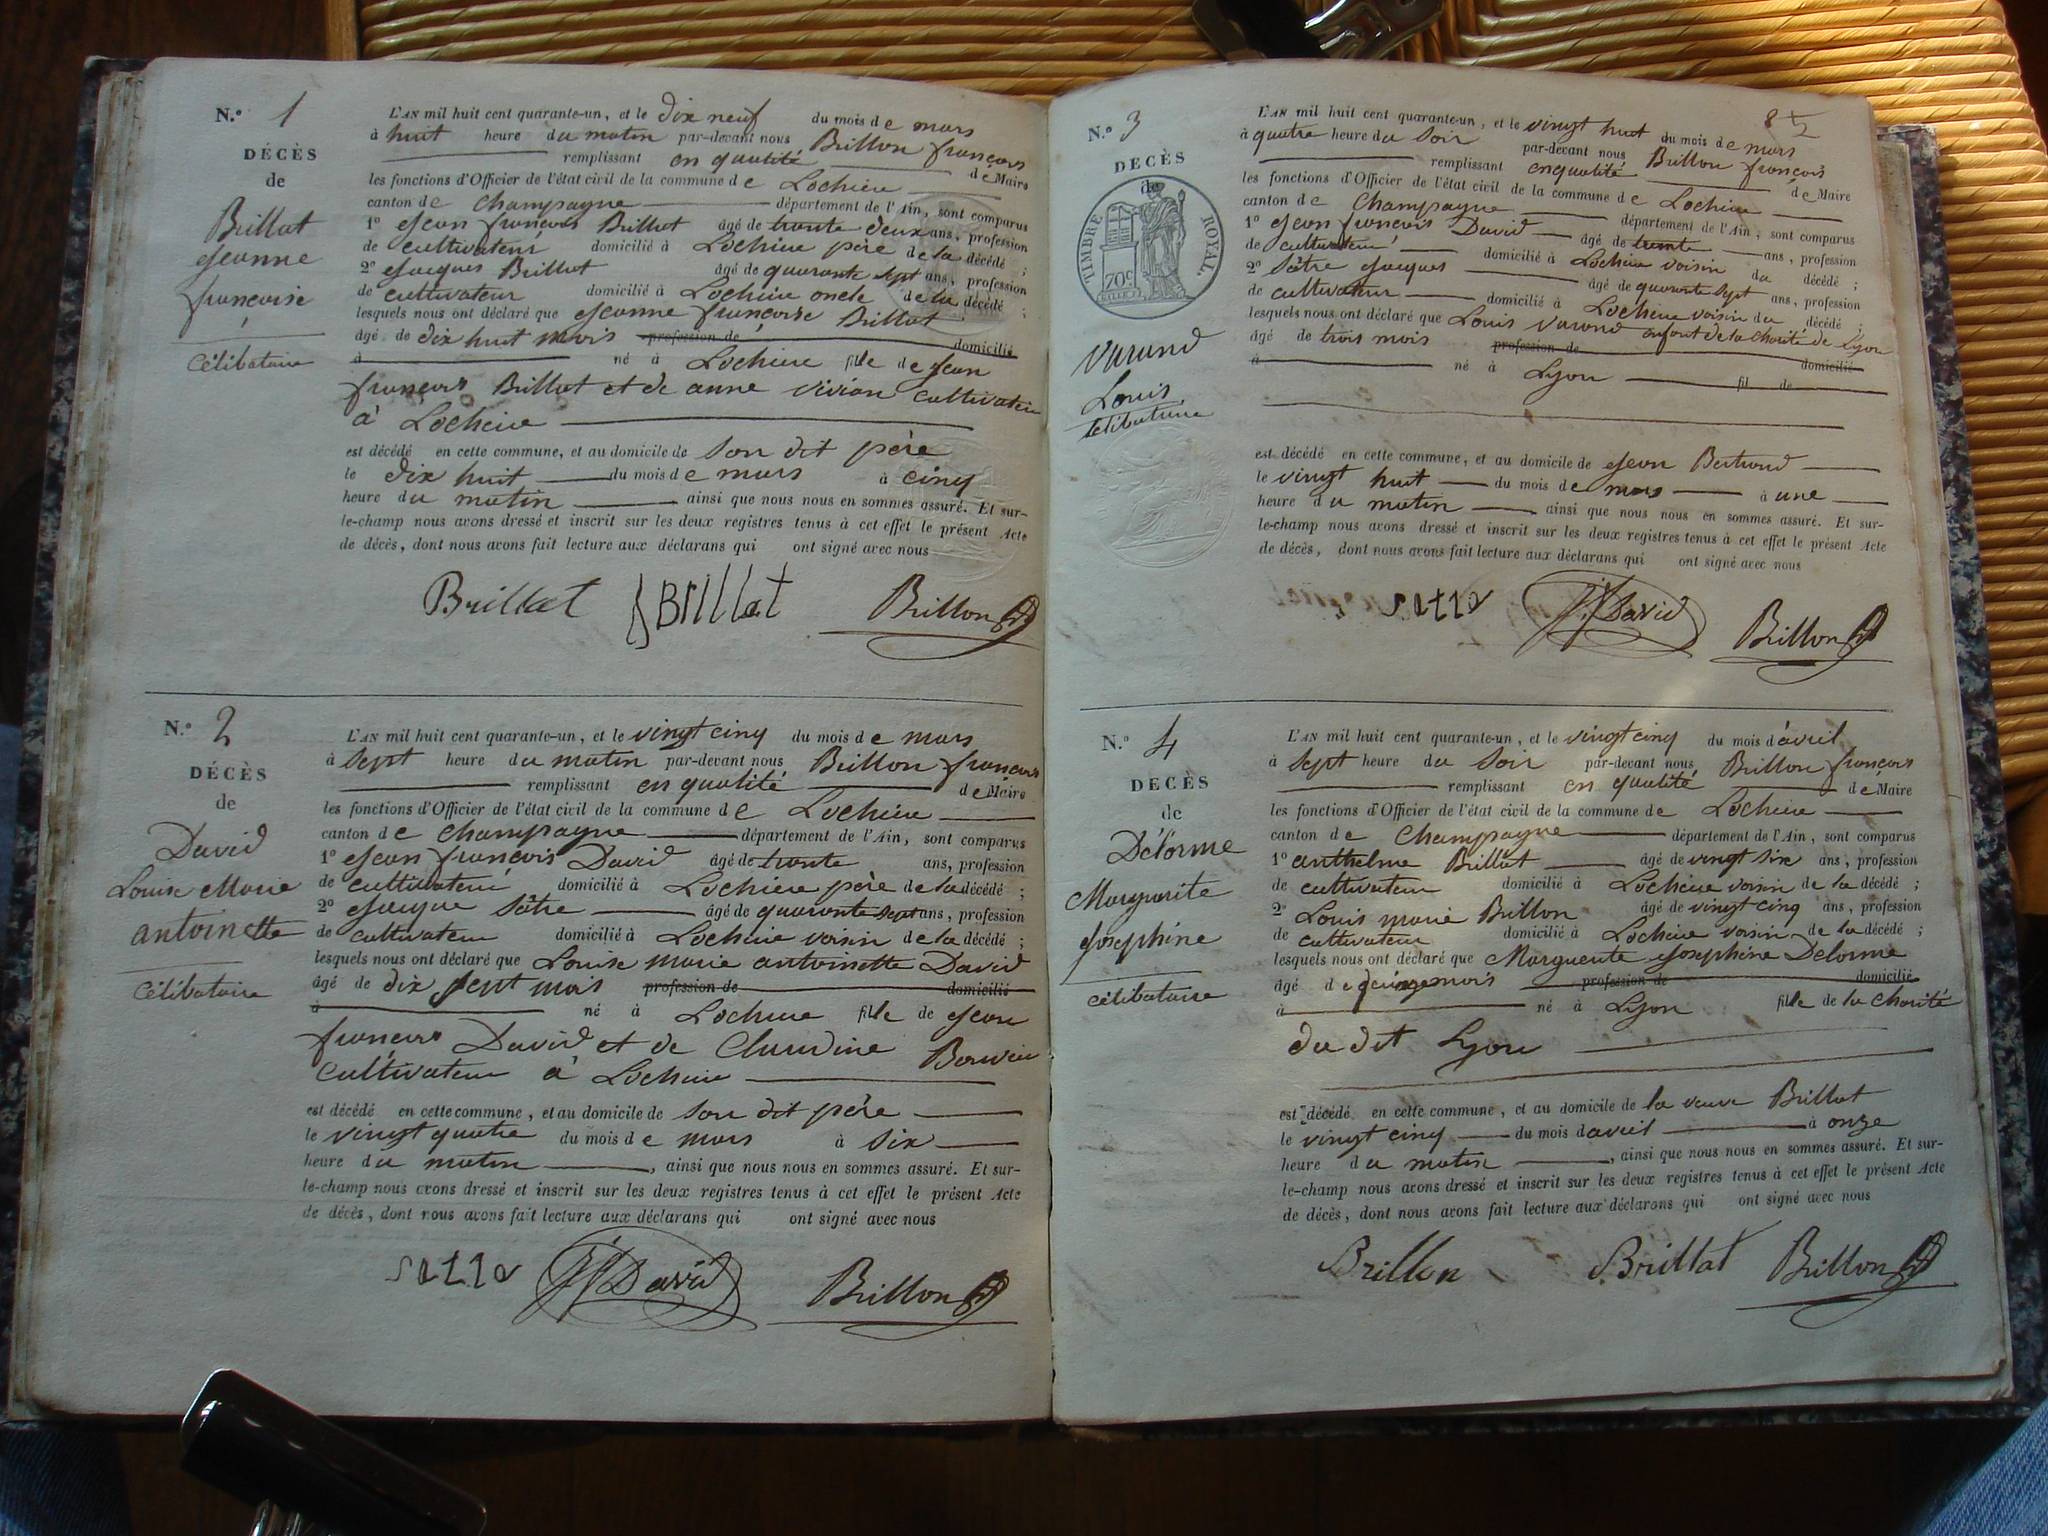 N.° 1
DÉCÈS
de
Brillat
Jeanne
françoise
célibataire
L'AN mil huit cent quarante-un, et le dix neuf du mois de mars
à huit heure du matin par-devant nous Brillon françois
remplissant en qualité de Maire
les fonctions d'Officier de l'état civil de la commune de Lochieu
canton de Champagne département de l'Ain, sont comparus
1° Jean françois Brillat âgé de trente deux ans, profession
de cultivateur domicilié à Lochieu père de la décédé ;
2° Jacques Brillat âgé de quarante sept ans, profession
de cultivateur domicilié à Lochieu oncle de la décédé ;
lesquels nous ont déclaré que Jeanne françoise Brillat
âgé de dix huit mois profession de domicilié
à né à Lochieu fille de Jean
françois Brillat et de anne vivian cultivateur
à Lochieu
est décédé en cette commune, et au domicile de son dit père
le dix huit du mois de mars à cinq
heure du matin ainsi que nous nous en sommes assuré. Et sur-
le-champ nous avons dressé et inscrit sur les deux registres tenus à cet effet le présent Acte
de décès, dont nous avons fait lecture aux déclarans qui ont signé avec nous
Brillat Brillat Brillon
N.° 2
DÉCÈS
de
David
Louise Marie
antoinette
célibataire
L'AN mil huit cent quarante-un, et le vingt cinq du mois de mars
à sept heure du matin par-devant nous Brillon françois
remplissant en qualité de Maire
les fonctions d'Officier de l'état civil de la commune de Lochieu
canton de Champagne département de l'Ain, sont comparus
1° Jean françois David âgé de trente ans, profession
de cultivateur domicilié à Lochieu père de la décédé ;
2° Jacque Sâtre âgé de quarante sept ans, profession
de cultivateur domicilié à Lochieu voisin de la décédé ;
lesquels nous ont déclaré que Louise marie antoinette David
âgé de dix sept mois profession de domicilié
à né à Lochieu fille de Jean
françois David et de Claudine
cultivateur à Lochieu
est décédé en cette commune, et au domicile de son dit père
le vingt quatre du mois de mars à six
heure du matin, ainsi que nous nous en sommes assuré. Et sur-
le-champ nous avons dressé et inscrit sur les deux registres tenus à cet effet le présent Acte
de décès, dont nous avons fait lecture aux déclarans qui ont signé avec nous
David Brillon
8
N.° 3
DÉCÈS
de
TIMBRE ROYAL
70c
Varand
Louis
célibataire
L'AN mil huit cent quarante-un, et le vingt huit du mois de mars
à quatre heure du soir par-devant nous Brillon françois
remplissant en qualité de Maire
les fonctions d'Officier de l'état civil de la commune de Lochieu
canton de Champagne département de l'Ain, sont comparus
1° Jean françois David âgé de trente ans, profession
de cultivateur domicilié à Lochieu voisin du décédé ;
2° Sâtre Jacques âgé de quarante sept ans, profession
de cultivateur domicilié à Lochieu voisin du décédé ;
lesquels nous ont déclaré que Louis varand enfant de la charité de Lyon
âgé de trois mois profession de domicilié
à né à Lyon fil de
est décédé en cette commune, et au domicile de Jean Bertrand
le vingt huit du mois de mars à une
heure du matin ainsi que nous nous en sommes assuré. Et sur-
le-champ nous avons dressé et inscrit sur les deux registres tenus à cet effet le présent Acte
de décès, dont nous avons fait lecture aux déclarans qui ont signé avec nous
David Brillon
N.° 4
DÉCÈS
de
Délorme
Marguerite
Josephine
célibataire
L'AN mil huit cent quarante-un, et le vingt cinq du mois d'avril
à sept heure du soir par-devant nous Brillon françois
remplissant en qualité de Maire
les fonctions d'Officier de l'état civil de la commune de Lochieu
canton de Champagne département de l'Ain, sont comparus
1° anthelme Brillat âgé de vingt six ans, profession
de cultivateur domicilié à Lochieu voisin de la décédé ;
2° Louis marie Brillon âgé de vingt cinq ans, profession
de cultivateur domicilié à Lochieu voisin de la décédé ;
lesquels nous ont déclaré que Marguerite Josephine Délorme
âgé de quinze mois profession de domicilié
à né à Lyon fille de la charité
du dit Lyon
est décédé en cette commune, et au domicile de la veuve Brillat
le vingt cinq du mois d'avril à onze
heure du matin, ainsi que nous nous en sommes assuré. Et sur-
le-champ nous avons dressé et inscrit sur les deux registres tenus à cet effet le présent Acte
de décès, dont nous avons fait lecture aux déclarans qui ont signé avec nous
Brillon Brillat Brillon